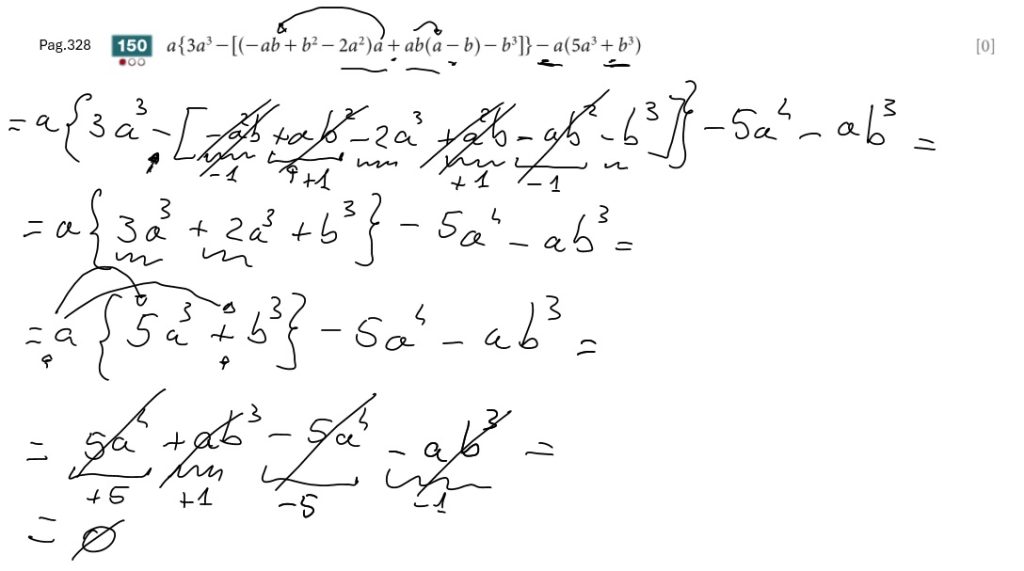 Pag.328 150 a{3a³ − [(−ab + b² − 2a²)a + ab(a − b) − b³]} − a(5a³ + b³) [0]
= a{3a³ − [−a²b + ab² − 2a³ + a²b − ab² − b³]} − 5a⁴ − ab³ =
−1 +1 +1 −1
= a{3a³ + 2a³ + b³} − 5a⁴ − ab³ =
= a{5a³ + b³} − 5a⁴ − ab³ =
= 5a⁴ + ab³ − 5a⁴ − ab³ =
+5 +1 −5 −1
= 0